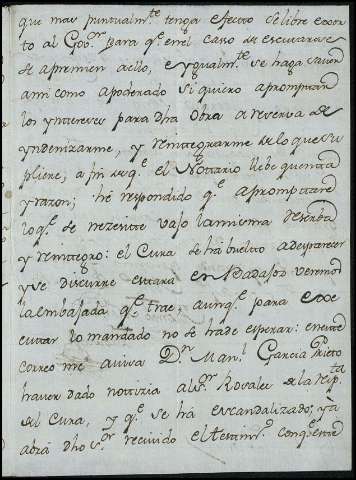 que mas puntualm.te tenga efecto se libre exor
to al Gov.or para q.e en el caso de escusarse
se apremien a ello, e ygualm.te se haga saver
a mi como apoderado si quiero apromptar
los yntereses para dha obra a reserva de
yndenizarme, y reintegrarme de lo que su
pliere; a fin de q.e el Nottario lleve quenta
y razon; he respondido q.e aprompttare
lo q.e se nezesite vajo la misma reserba
y reintegro: el Cura se ha buelto a desparecer
y se discurre estara en Badajoz veremos
la embajada q.e trae, aunq.e para exe
cutar lo mandado no se ha de esperar: en este
correo me avisa D.n Man.l Garcia Prieto
haver dado notizia al S.r Rosales de la
del Cura, y q.e se ha escandalizado; ya
abrá dho S.r recivido el testim.o con q.e